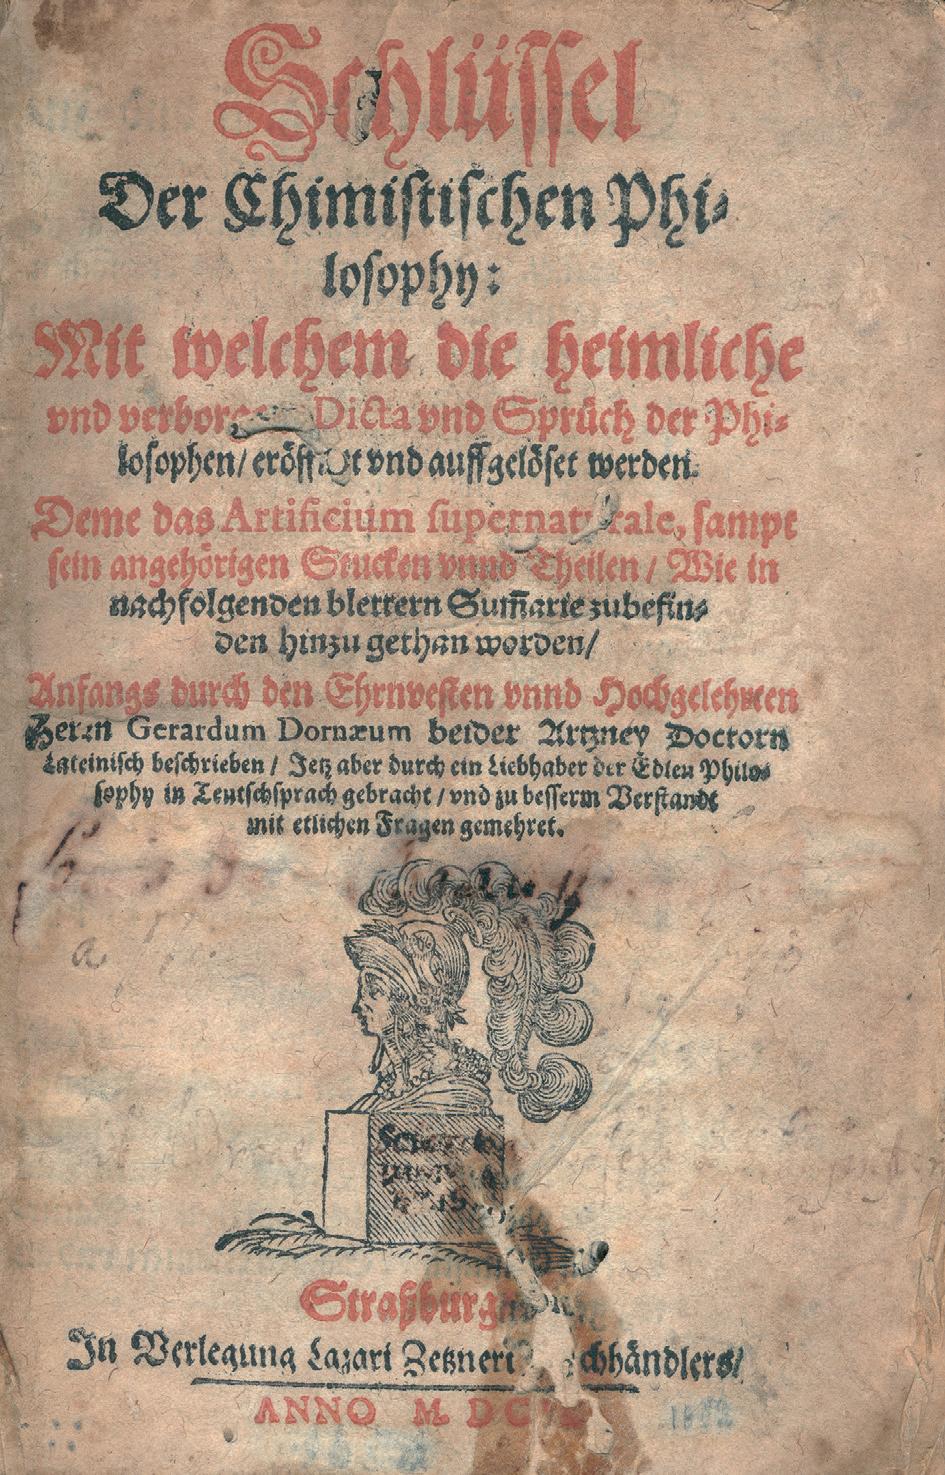 Schlüssel
Der Chimistischen Phi-
losophy:
Mit welchem die heimliche
vnd Dicta vnd Sprüch der Phi-
losophen/ vnd auffgelöset werden.
Deme das Artificium sampt
sein angehörigen Stucken vnnd Theilen/ Wie in
nachfolgenden blettern Sum̃arie zubefin-
den hinzu gethan worden/
Anfangs durch den Ehrnvesten vnnd Hochgelehrten
Herrn Gerardum Dornæum beider Artzney Doctorn
Lateinisch beschrieben/ Jetz aber durch ein Liebhaber der Edlen Philo-
sophy in Teutschsprach gebracht/ vnd zu besserm Verstandt
mit etlichen Fragen gemehret.
Straßburg
In Verlegung Lazari Zetzneri
ANNO